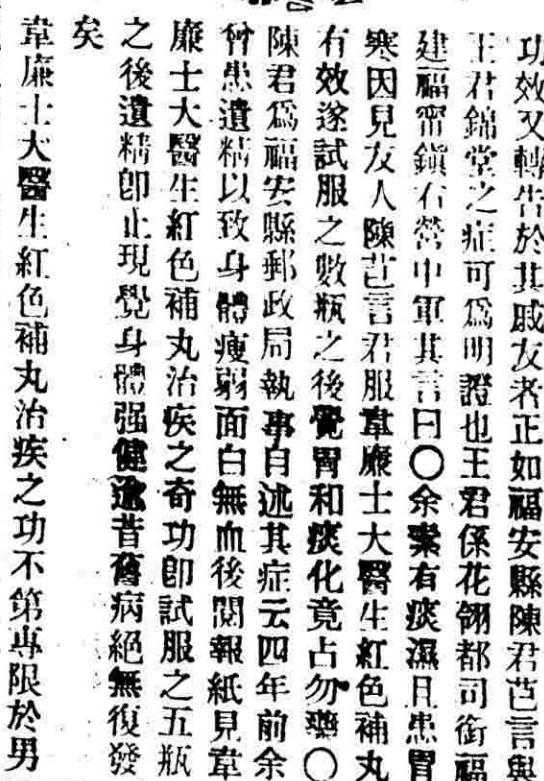 功效又轉告於其戚友者正如福安縣陳君芑言與
王君錦堂之症可爲明證也王君係花翎都司銜福
建福甯鎮右營中軍其言曰〇余素有痰濕且患胃
寒因見友人陳芑言君服韋廉士大醫生紅色補丸
有效遂試服之數瓶之後覺胃和痰化竟占勿藥〇
陳君爲福安縣郵政局執事自述其症云四年前余
曾患遺精以致身體瘦弱面白無血後閱報紙見韋
廉士大醫生紅色補丸治疾之奇功卽試服之五瓶
之後遺精卽止現覺身體强健逾昔舊病絕無復發
矣
韋廉士大醫生紅色補丸治疾之功不第專限於男